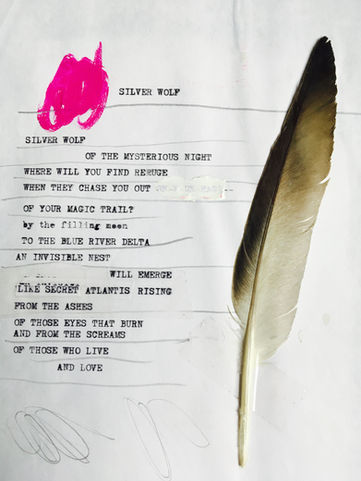 SILVER WOLF
SILVER WOLF
OF THE MYSTERIOUS NIGHT
WHERE WILL YOU FIND REFUGE
WHEN THEY CHASE YOU OUT
OF YOUR MAGIC TRAIL?
by the filling moon
TO THE BLUE RIVER DELTA
AN INVISIBLE NEST
WILL EMERGE
LIKE SECRET ATLANTIS RISING
FROM THE ASHES
OF THOSE EYES THAT BURN
AND FROM THE SCREAMS
OF THOSE WHO LIVE
AND LOVE